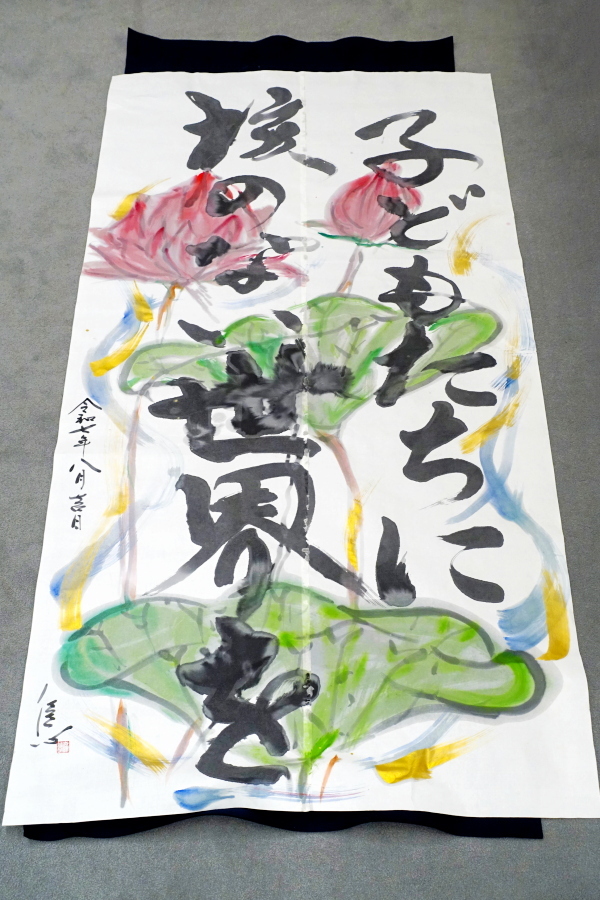 子どもたちに
核のない世界を
令和七年八月吉日